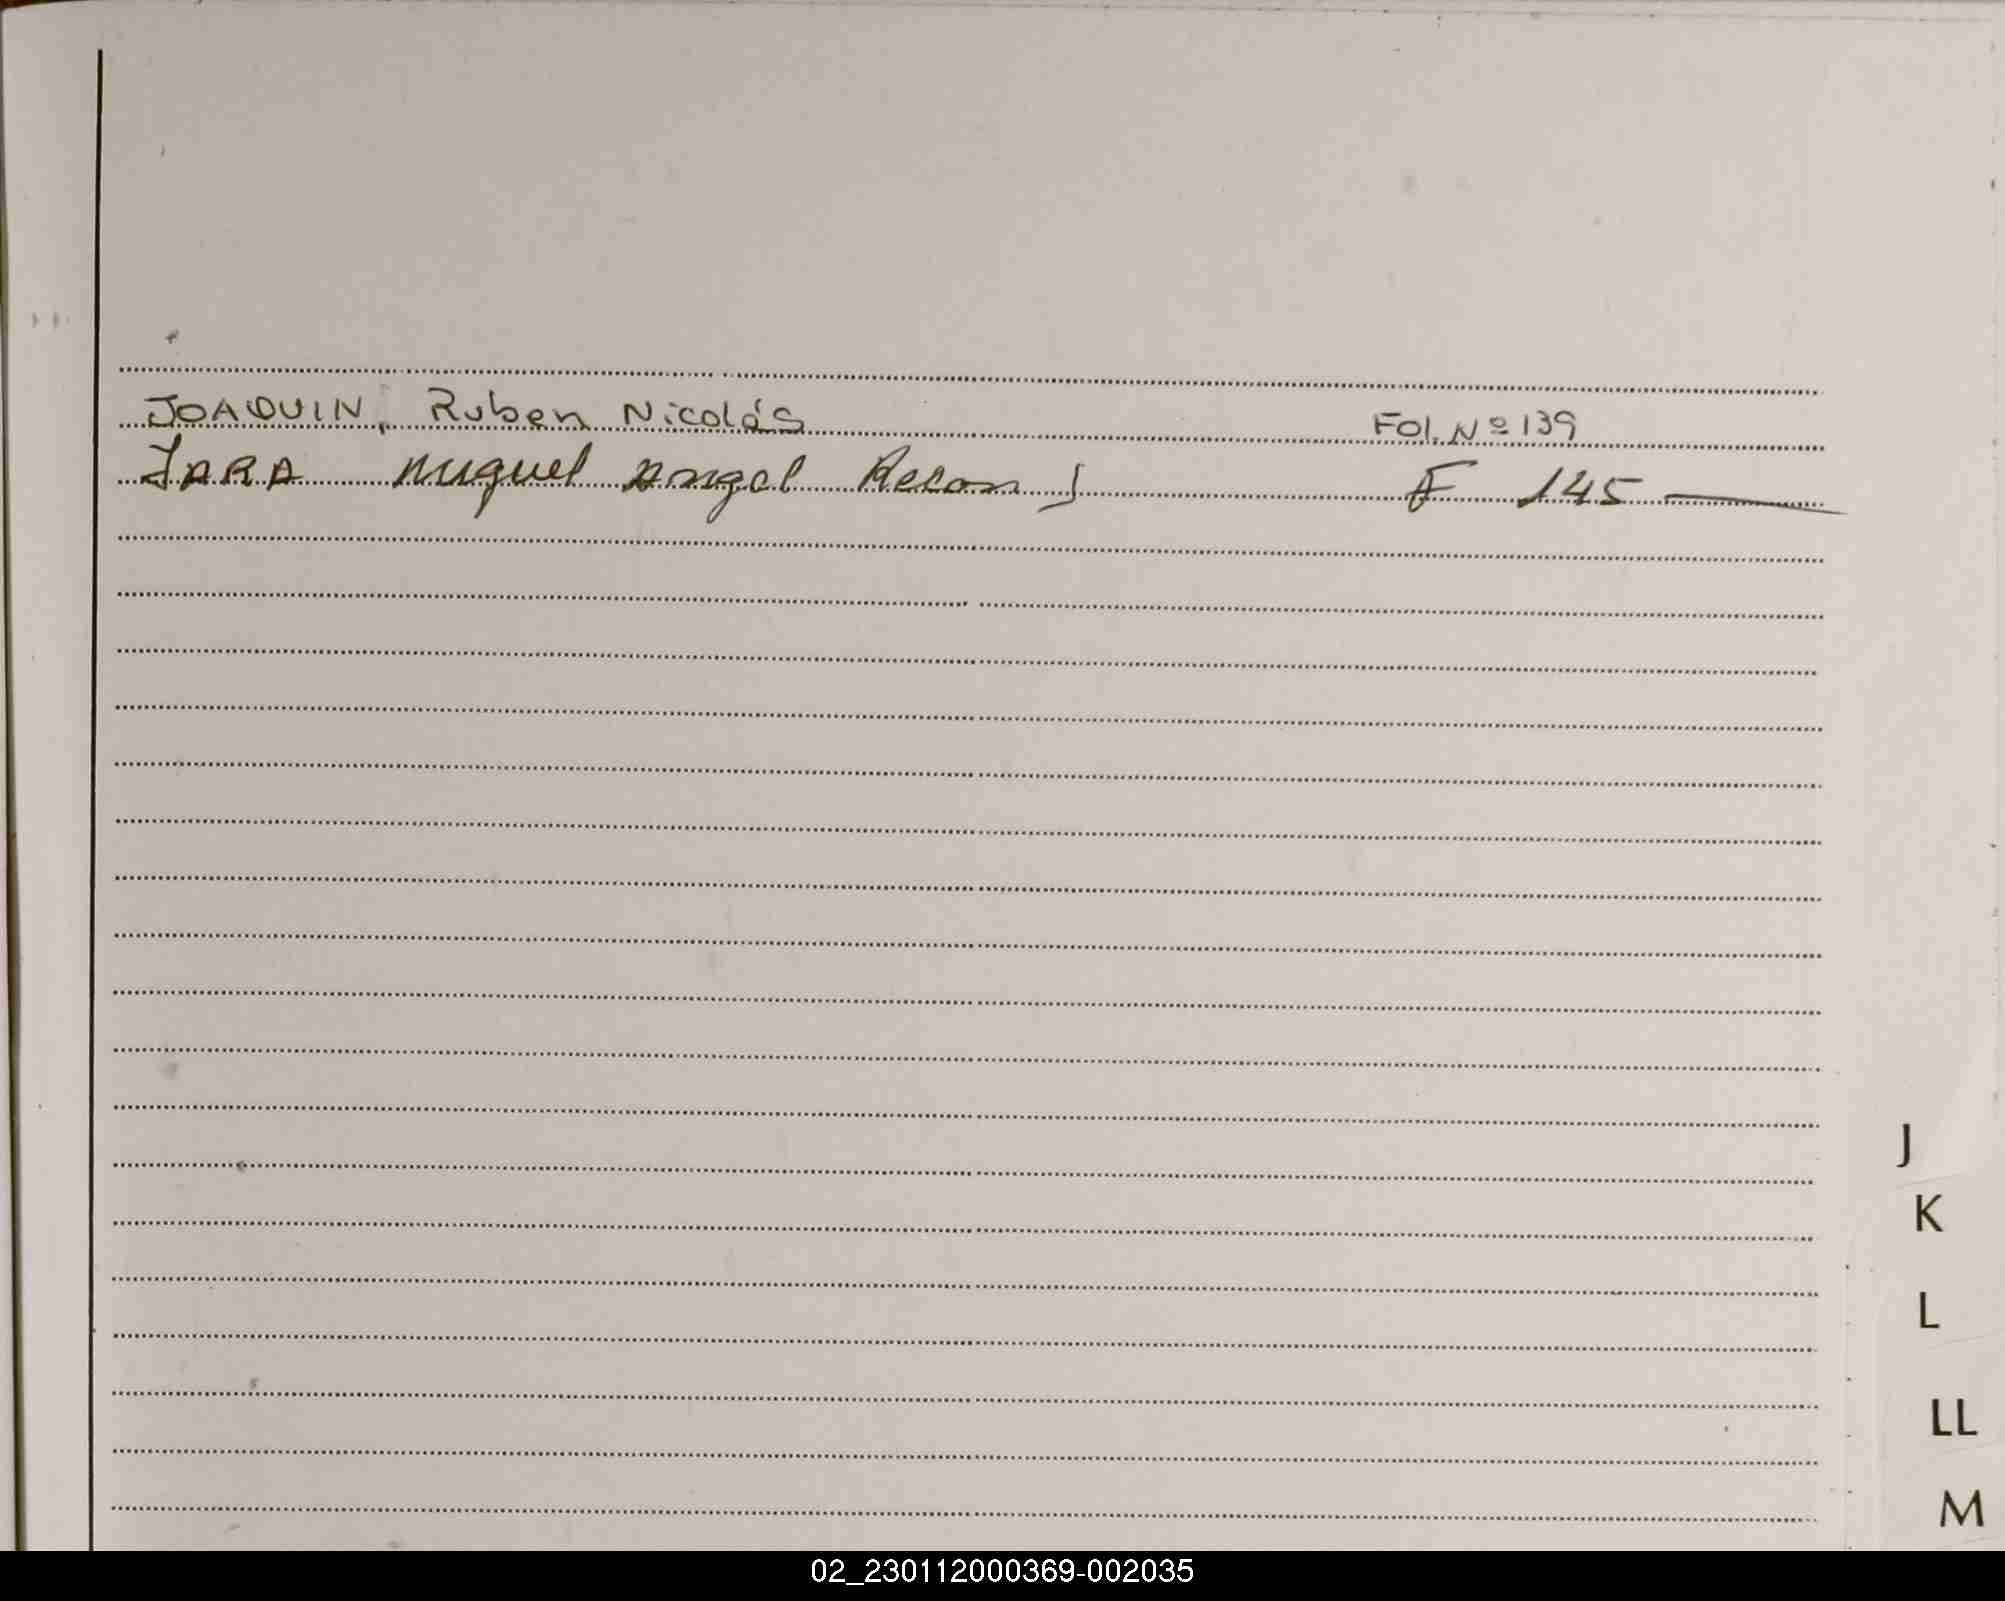 JOAQUIN, Ruben Nicolás Fol. Nº 139
JARA Miguel Angel Recon J F 145
J
K
L
LL
M
02_230112000369-002035